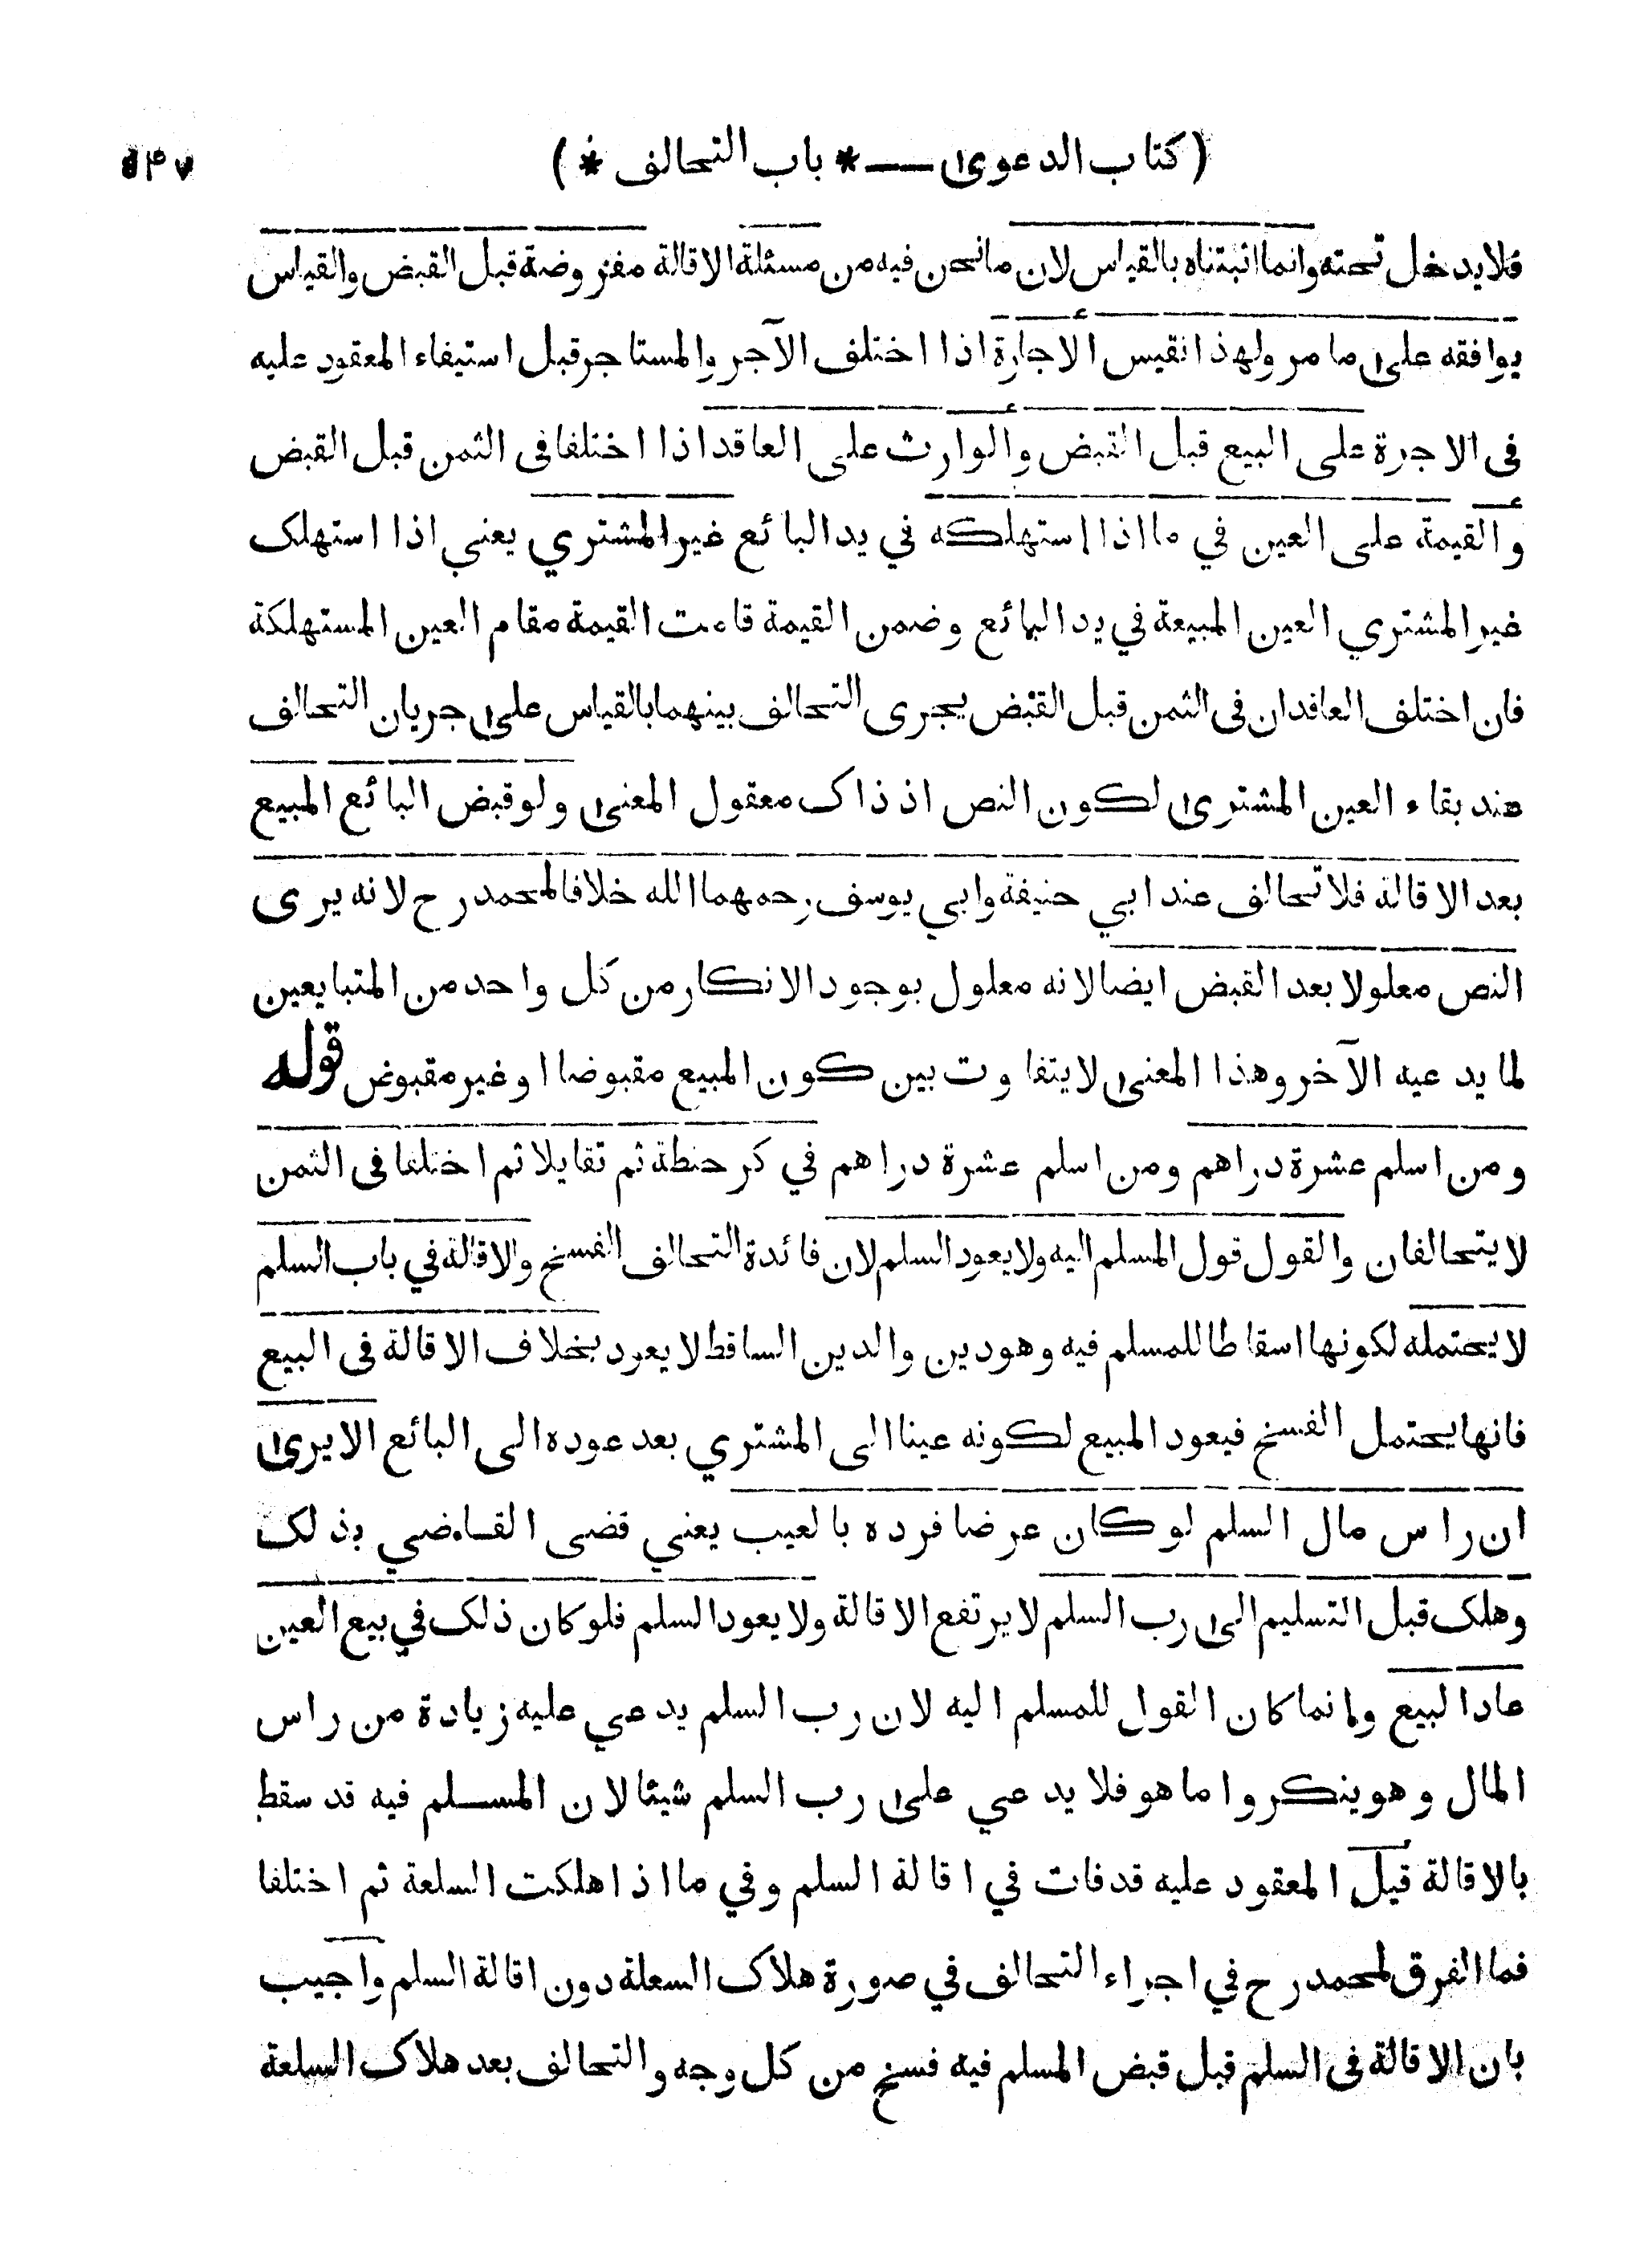 (كتاب الدعوى — * باب التحالف *)
فلا يدخل تحته وانما اثبتناه بالقياس لان ما نحن فيه من مسئلة الاقالة مفروضة قبل القبض والقياس
يوافقه على ما مر ولهذا نقيس الاجارة اذا اختلف الآجر والمستاجر قبل استيفاء المعقود عليه
فى الاجرة على البيع قبل القبض والوارث على العاقد اذا اختلفا فى الثمن قبل القبض
والقيمة على العين في ما اذا استهلكه في يد البائع غير المشتري يعني اذا استهلك
غير المشتري العين المبيعة في يد البائع وضمن القيمة قامت القيمة مقام العين المستهلكة
فان اختلف العاقدان فى الثمن قبل القبض يجرى التحالف بينهما بالقياس على جريان التحالف
عند بقاء العين المشترى لكون النص اذ ذاك معقول المعنى ولو قبض البائع المبيع
بعد الاقالة فلا تحالف عند ابي حنيفة وابي يوسف رحمهما الله خلافا لمحمد رح لانه يرى
النص معلولا بعد القبض ايضا لانه معلول بوجود الانكار من كل واحد من المتبايعين
لما يدعيه الآخر وهذا المعنى لا يتفاوت بين كون المبيع مقبوضا او غير مقبوض قوله
ومن اسلم عشرة دراهم ومن اسلم عشرة دراهم في كر حنطة ثم تقايلا ثم اختلفا فى الثمن
لا يتحالفان والقول قول المسلم اليه ولا يعود السلم لان فائدة التحالف الفسخ والاقالة في باب السلم
لا يحتمله لكونها اسقاطا للمسلم فيه وهو دين والدين الساقط لا يعود بخلاف الاقالة فى البيع
فانها يحتمل الفسخ فيعود المبيع لكونه عينا الى المشتري بعد عوده الى البائع الا يرى
ان راس مال السلم لو كان عرضا فرده بالعيب يعني قضى القاضي بذلك
وهلك قبل التسليم الى رب السلم لا يرتفع الاقالة ولا يعود السلم فلو كان ذلك في بيع العين
عاد البيع وانما كان القول للمسلم اليه لان رب السلم يدعي عليه زيادة من راس
المال وهو ينكر واما هو فلا يدعي على رب السلم شيئا لان المسلم فيه قد سقط
بالاقالة قيل المعقود عليه قد فات في اقالة السلم وفي ما اذا هلكت السلعة ثم اختلفا
فما الفرق لمحمد رح في اجراء التحالف في صورة هلاك السعلة دون اقالة السلم واجيب
بان الاقالة فى السلم قبل قبض المسلم فيه فسخ من كل وجه والتحالف بعد هلاك السلعة